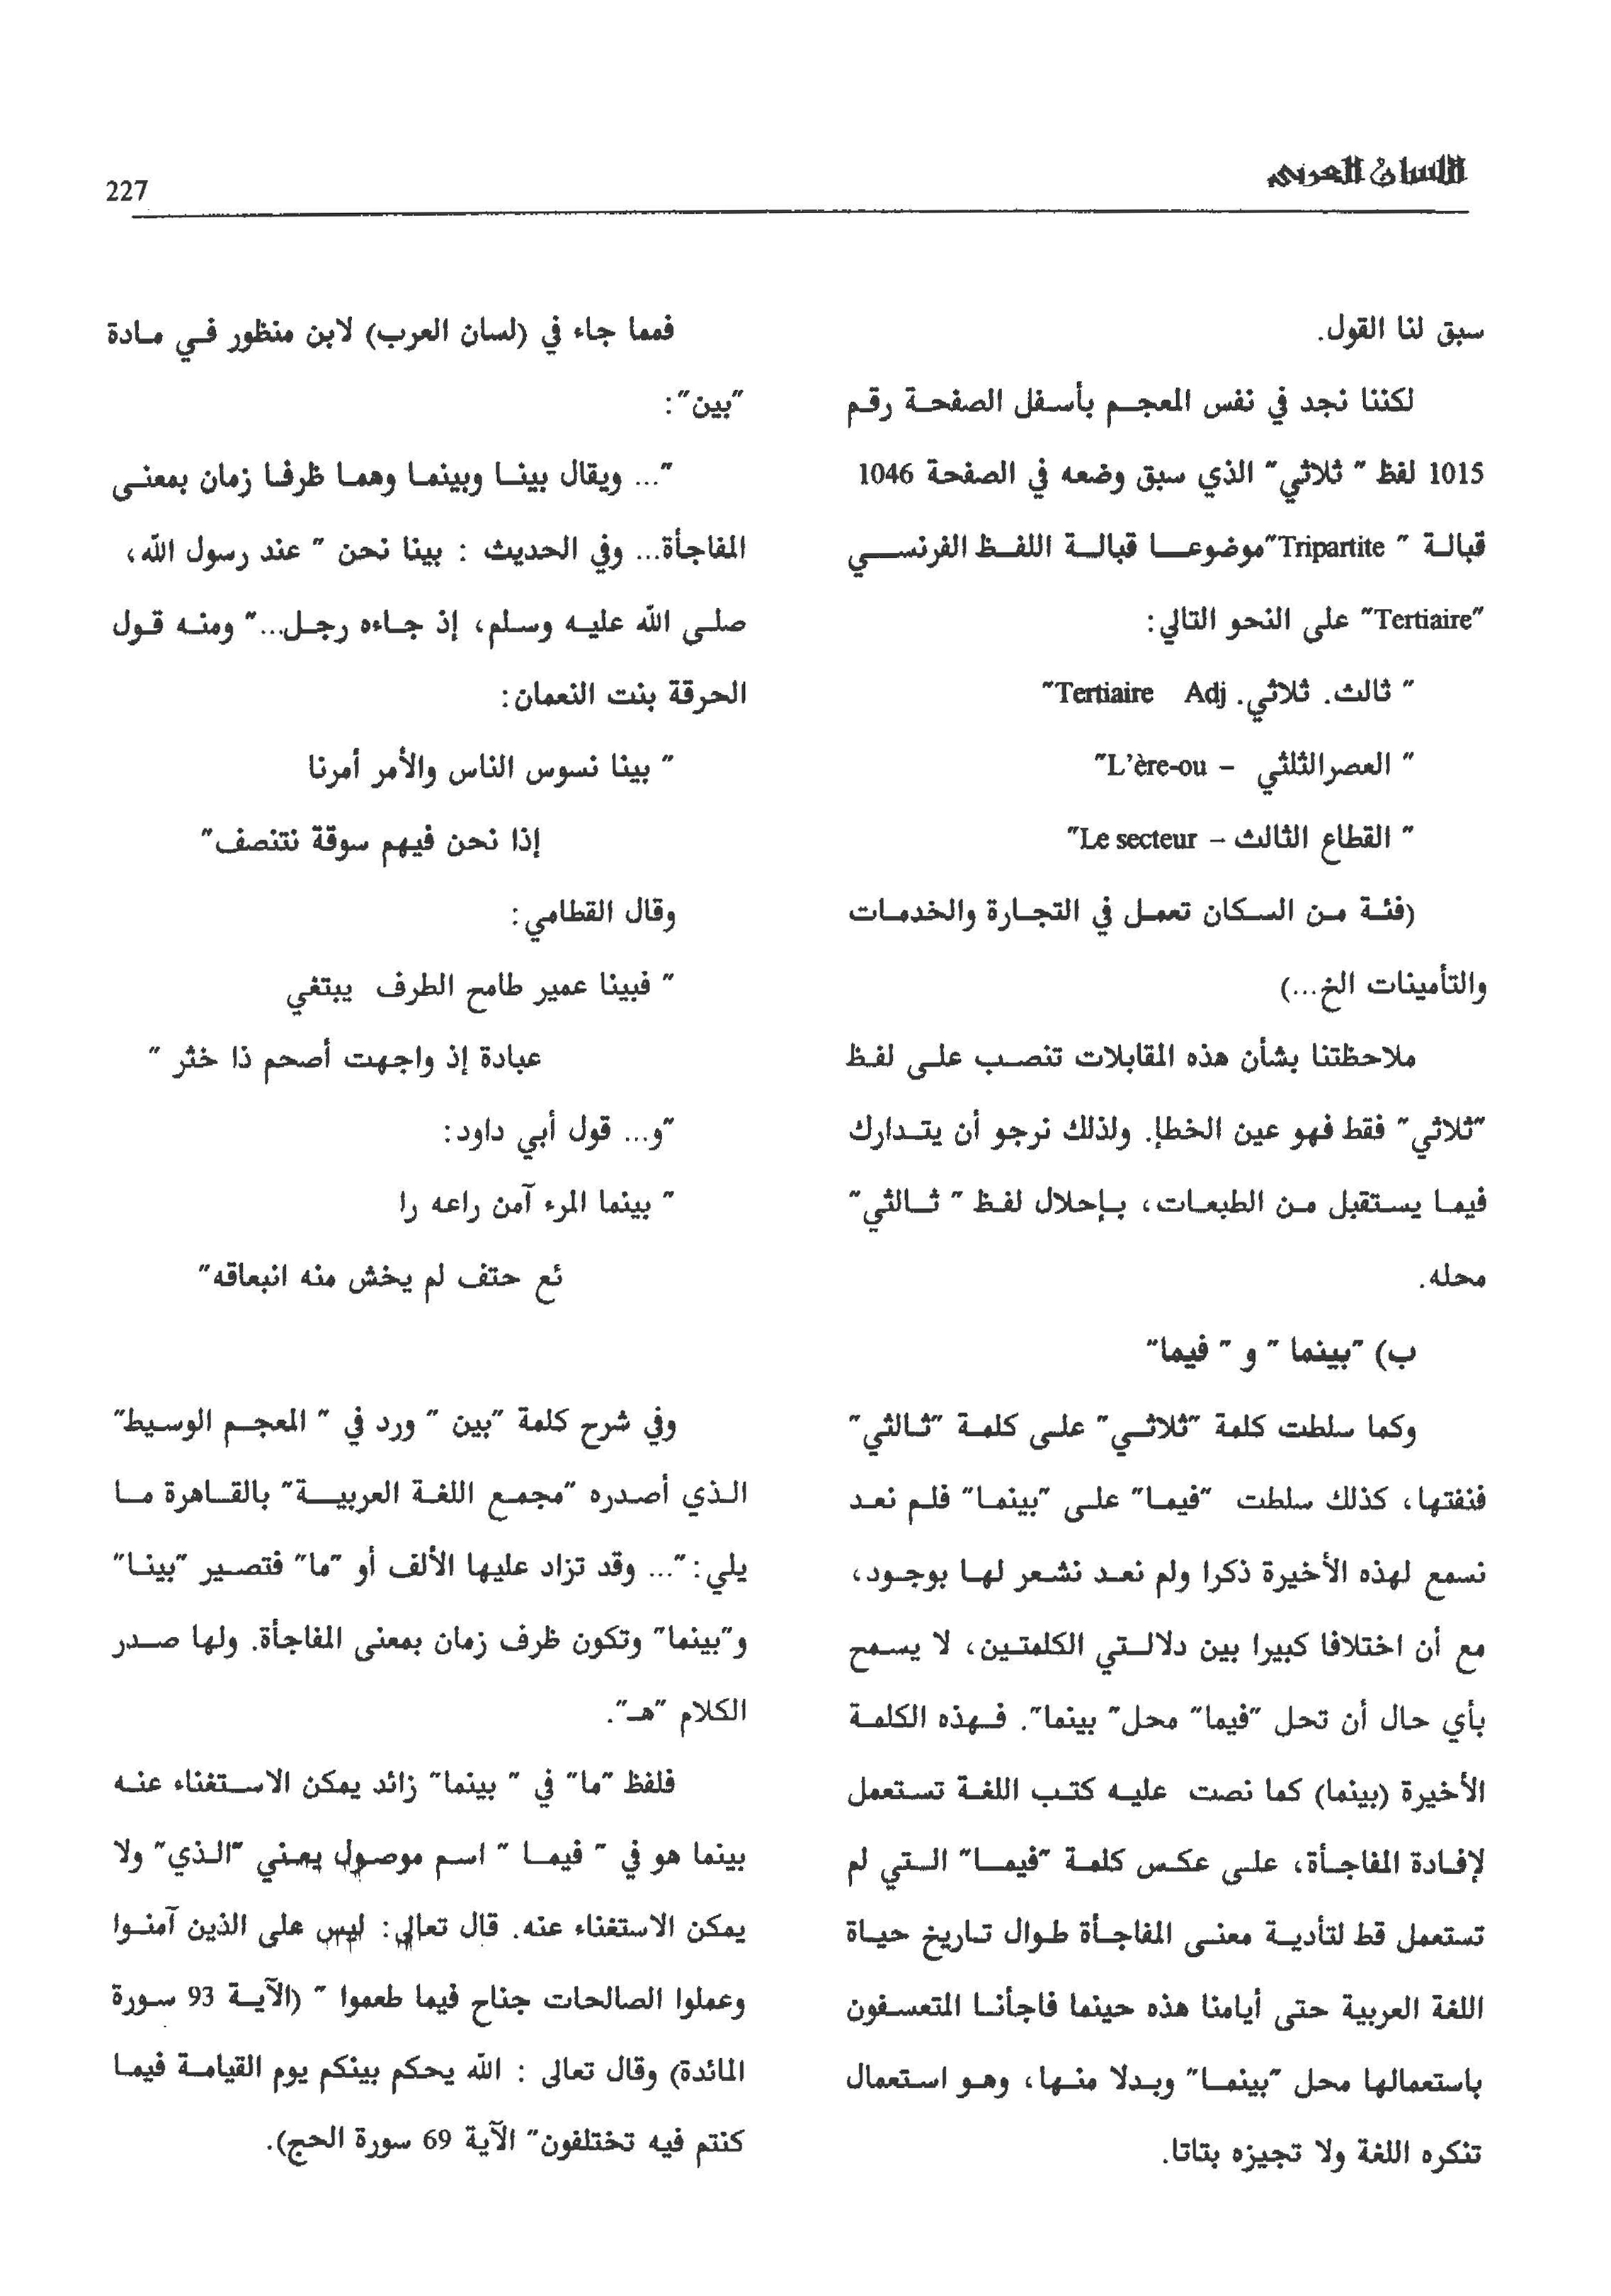 اللسان العربي
227
سبق لنا القول.
لكننا نجد في نفس المعجم بأسفل الصفحة رقم
1015 لفظ " ثلاثي" الذي سبق وضعه في الصفحة 1046
قبالة " Tripartite"موضوعا قبالة اللفظ الفرنسي
"Tertiaire" على النحو التالي:
" ثالث. ثلاثي. Tertiaire Adj"
" العصرالثلثي - L'ère-ou"
" القطاع الثالث - Le secteur"
(فئة من السكان تعمل في التجارة والخدمات
والتأمينات الخ...)
ملاحظتنا بشأن هذه المقابلات تنصب على لفظ
"ثلاثي" فقط فهو عين الخطإ. ولذلك نرجو أن يتدارك
فيما يستقبل من الطبعات، بإحلال لفظ " ثالثي"
محله.
ب) "بينما " و " فيما"
وكما سلطت كلمة "ثلاثي" على كلمة "ثالثي"
فنفتها، كذلك سلطت "فيما" على "بينما" فلم نعد
نسمع لهذه الأخيرة ذكرا ولم نعد نشعر لها بوجود،
مع أن اختلافا كبيرا بين دلالتي الكلمتين، لا يسمح
بأي حال أن تحل "فيما" محل" بينما". فهذه الكلمة
الأخيرة (بينما) كما نصت عليه كتب اللغة تستعمل
لإفادة المفاجأة، على عكس كلمة "فيما" التي لم
تستعمل قط لتأدية معنى المفاجأة طوال تاريخ حياة
اللغة العربية حتى أيامنا هذه حينما فاجأنا المتعسفون
باستعمالها محل "بينما" وبدلا منها، وهو استعمال
تنكره اللغة ولا تجيزه بتاتا.
فمما جاء في (لسان العرب) لابن منظور في مادة
"بين":
"... ويقال بينا وبينما وهما ظرفا زمان بمعنى
المفاجأة... وفي الحديث : بينا نحن " عند رسول الله،
صلى الله عليه وسلم، إذ جاءه رجل..." ومنه قول
الحرقة بنت النعمان:
" بينا نسوس الناس والأمر أمرنا
إذا نحن فيهم سوقة نتنصف"
وقال القطامي:
" فبينا عمير طامح الطرف يبتغي
عبادة إذ واجهت أصحم ذا خثر "
"و... قول أبي داود:
" بينما المرء آمن راعه را
ئع حتف لم يخش منه انبعاقه"
وفي شرح كلمة "بين " ورد في " المعجم الوسيط"
الذي أصدره "مجمع اللغة العربية" بالقاهرة ما
يلي: "... وقد تزاد عليها الألف أو "ما" فتصير "بينا"
و"بينما" وتكون ظرف زمان بمعنى المفاجأة. ولها صدر
الكلام "هـ".
فلفظ "ما" في " بينما" زائد يمكن الاستغناء عنه
بينما هو في " فيما " اسم موصول يعني "الذي" ولا
يمكن الاستغناء عنه. قال تعالى: ليس على الذين آمنوا
وعملوا الصالحات جناح فيما طعموا " (الآية 93 سورة
المائدة) وقال تعالى : الله يحكم بينكم يوم القيامة فيما
كنتم فيه تختلفون" الآية 69 سورة الحج).